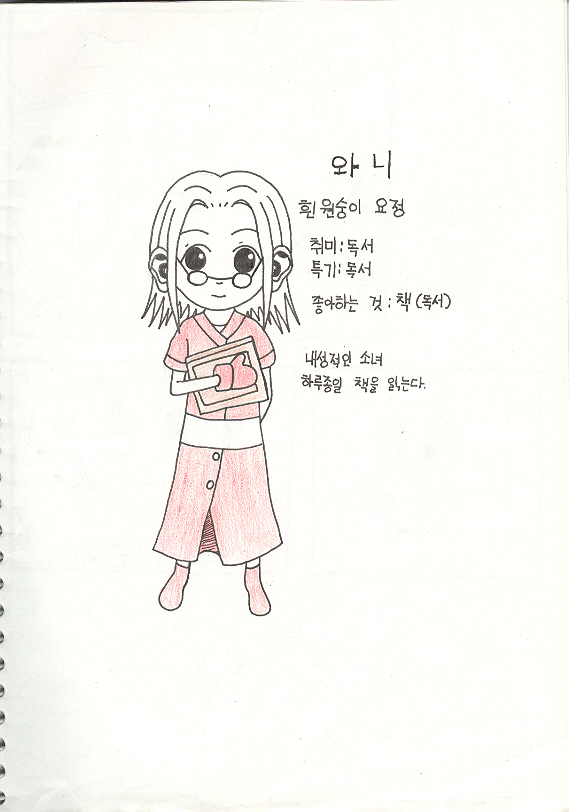 와니
흰 원숭이 요정
취미:독서
특기:독서
좋아하는 것:책(독서)
내성적인 소녀
하루종일 책을 읽는다.